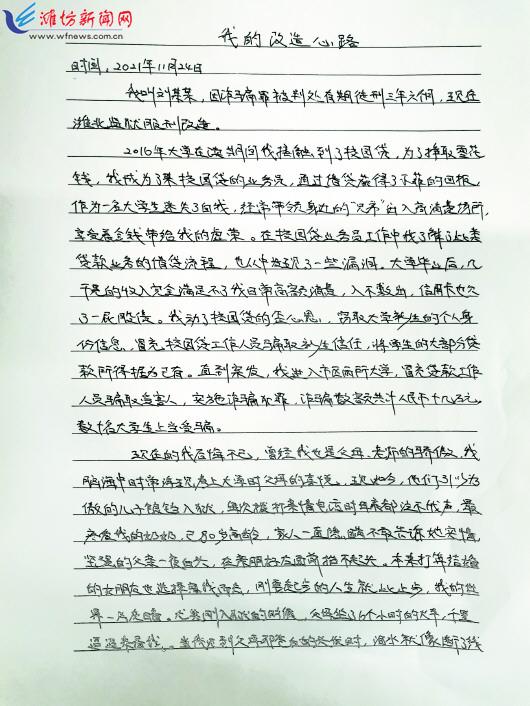 潍坊新闻网
www.wfnews.com.cn
我的改造心路
时间：2021年11月24日
我叫刘某某，因诈骗罪被判处有期徒刑三年六个月，现在
潍北监狱服刑改造。
2016年大学在读期间我接触到了校园贷，为了挣取零花
钱，我成为了某校园贷的业务员，通过借贷赢得了不菲的回报，
作为一名大学生迷失了自我，经常带领身边的“兄弟”出入高消费场所，
享受着金钱带给我的虚荣。在校园贷业务员工作中我了解了此类
贷款业务的借贷流程，也从中发现了一些漏洞。大学毕业后，几
千元的收入完全满足不了我日常高额消费，入不敷出，信用卡也欠
了一屁股债。我动了校园贷的歪心思，窃取大学新生的个人身
份信息，冒充校园贷工作人员骗取新生信任，将学生的大部分贷
款所得据为己有。直到案发，我进入市区两所大学，冒充贷款工作
人员骗取受害人，实施诈骗犯罪，诈骗数额共计人民币十几万元，
数十名大学生上当受骗。
现在的我后悔不已，曾经我也是父母、老师的骄傲，我
脑海中时常浮现考上大学时父母的喜悦。现如今，他们引以为
傲的儿子锒铛入狱，每次拨打亲情电话时母亲都泣不成声，最
疼爱我的奶奶，已80岁高龄，家人一直隐瞒不敢告诉她实情，
坚强的父亲一夜白头，在亲朋好友面前抬不起头。本来打算结婚
的女朋友也选择离我而去，刚要起步的人生就此止步，我的世
界一片灰暗。尤其刚入监的时候，父母坐了6个小时的火车，千里
迢迢来看我，当我见到父母那苍白的头发时，泪水就像断了线